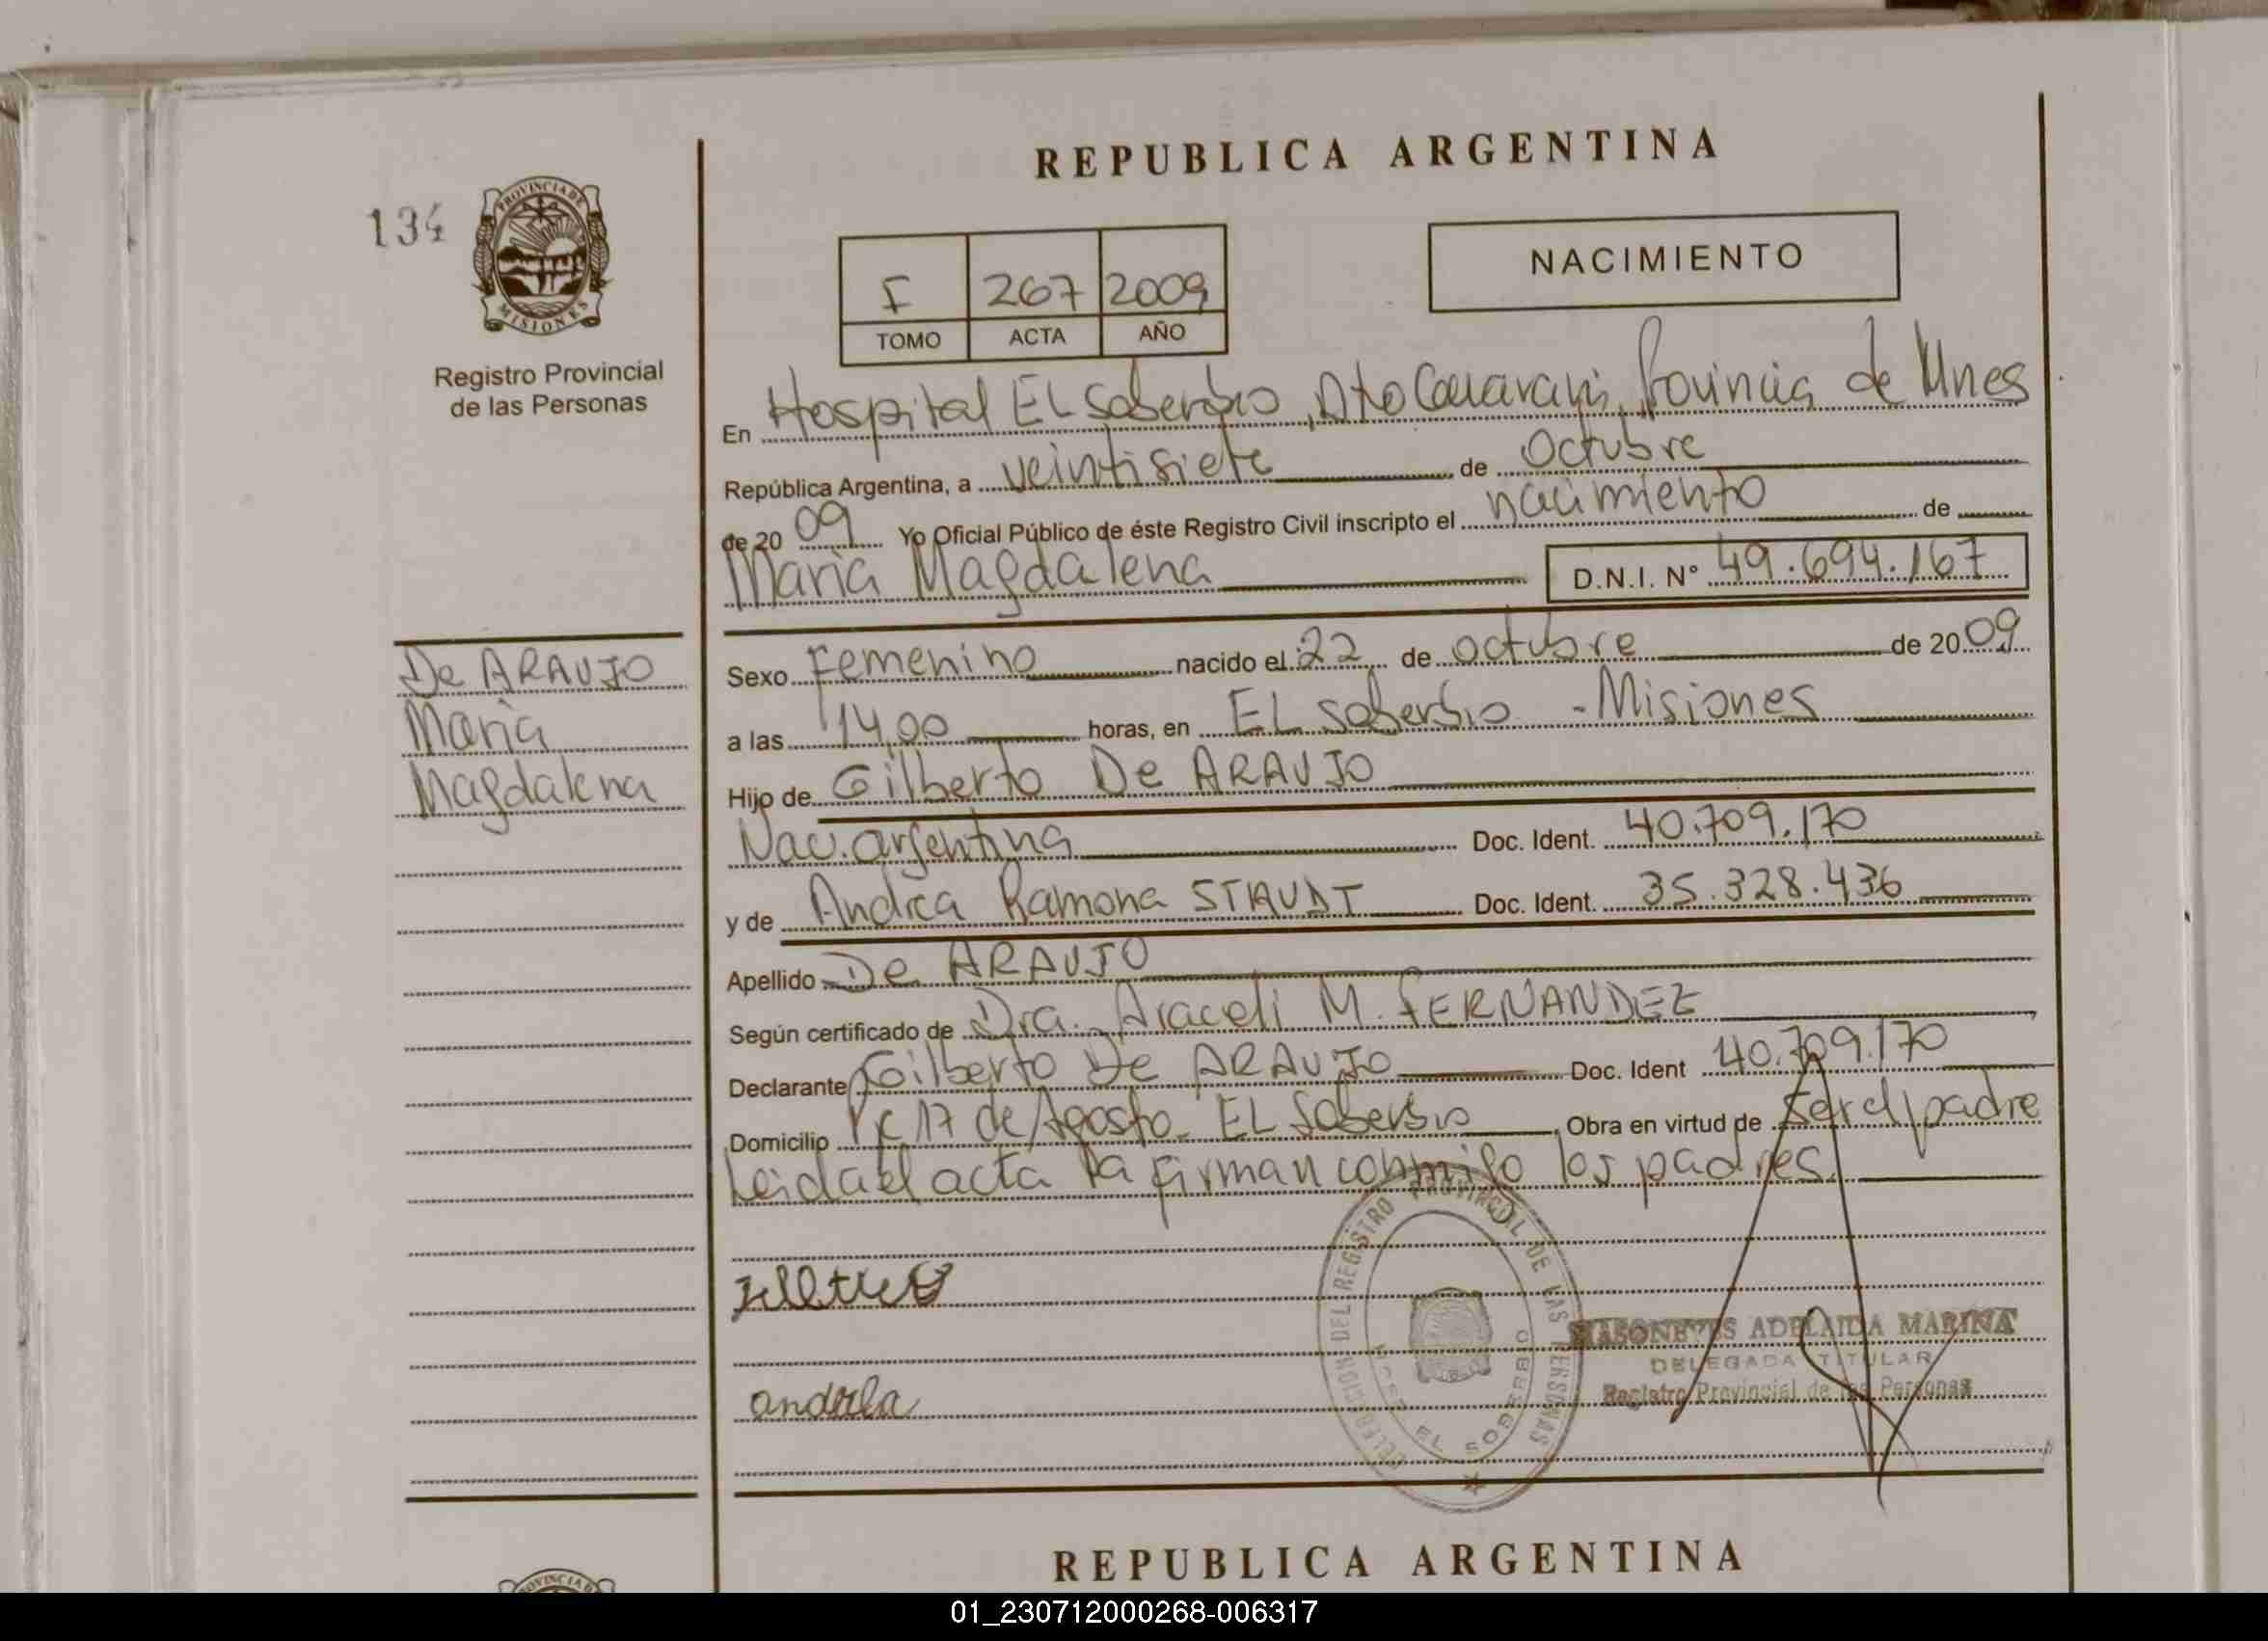 REPUBLICA ARGENTINA
134
PROVINCIA DE
MISIONES
Registro Provincial
de las Personas
F 267 2009
TOMO ACTA AÑO
NACIMIENTO
En Hospital EL Soberbio, Dto Caraguay, Provincia de Mnes
República Argentina, a veintisiete de Octubre
de 2009 Yo Oficial Público de éste Registro Civil inscripto el nacimiento de
Maria Magdalena D.N.I. N° 49.694.167
De ARAUJO
Maria
Magdalena
Sexo Femenino nacido el 22 de octubre de 2009
a las 14,00 horas, en EL Soberbio - Misiones
Hijo de Gilberto De ARAUJO
Nac. argentina Doc. Ident. 40.709.170
y de Andrea Ramona STAUDT Doc. Ident. 35.328.436
Apellido De ARAUJO
Según certificado de Dra. Araceli M. FERNANDEZ
Declarante Gilberto De ARAUJO Doc. Ident 40.709.170
Domicilio 17 de Agosto - EL Soberbio Obra en virtud de ser el padre
Leida el acta la firman conmigo los padres.
DELEGACION DEL REGISTRO PROVINCIAL DE LAS PERSONAS
EL SOBERBIO
ADELAIDA MARINA
DELEGADA TITULAR
Registro Provincial de las Personas
REPUBLICA ARGENTINA
01_230712000268-006317